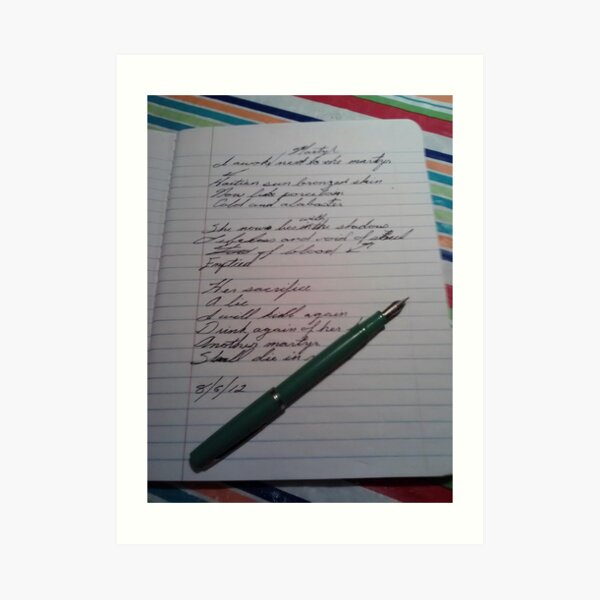 Martyr
I awoke next to the martyr
Haitian sun bronzed skin
Now like porcelain
Cold and alabaster
with
She now the shadow
Lifeless and void of
of blood
Emptied
Her sacrifice
A lie
I will kill again
Drink again of her
Another martyr
Shall die in
8/5/12